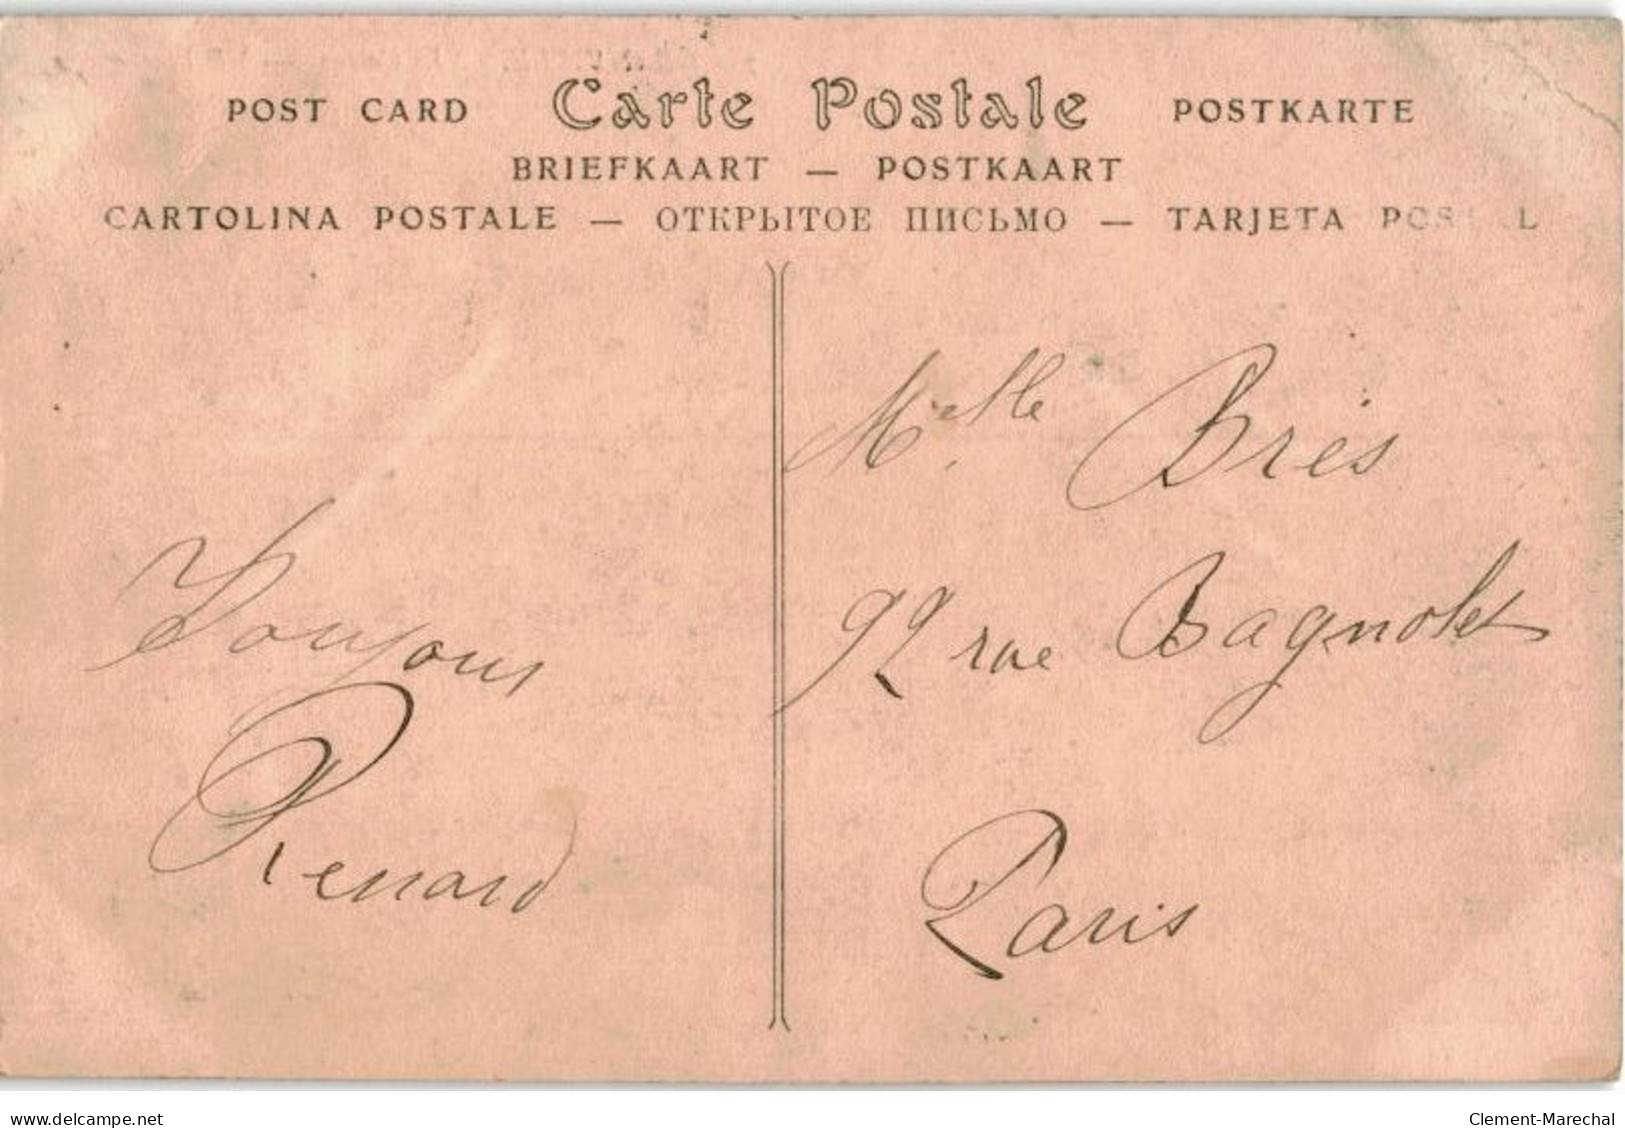 POST CARD Carte Postale POSTKARTE
BRIEFKAART — POSTKAART
CARTOLINA POSTALE — ОТКРЫТОЕ ПИСЬМО — TARJETA POSTAL
Toujours
Renard
Melle Bres
92 rue Bagnolet
Paris
www.delcampe.net
Clement-Marechal